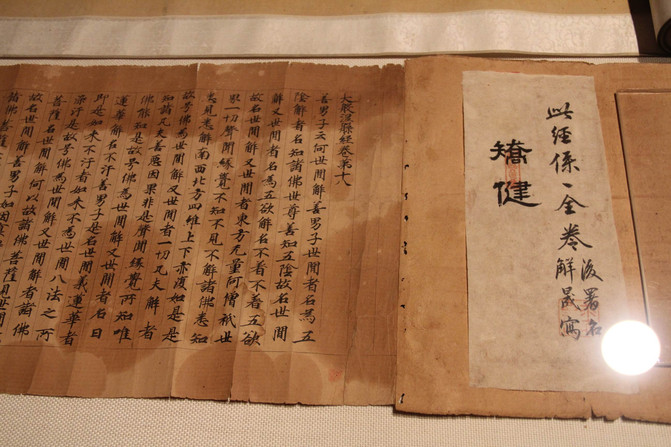 此經係一全卷
後署名
解晟寫
矯健
大般涅槃經卷第十八
善男子云何世間解善男子世間者名為五
陰解者名知諸佛世尊善知五陰故名世間
解又世間者名為五欲解名不着不着五欲
故名世間解又世間者東方无量阿僧祇世
界一切聲聞緣覺不知不見不解諸佛悉知
悉見悉解南西北方四維上下亦復如是是
故号佛為世間解又世間者一切凡夫解者
知諸凡夫善惡因果非是聲聞緣覺所知唯
佛能知是故号佛為世間解又世間者名曰
蓮華解名不汙善男子是名世間義蓮華者
即是如來不汙者如來不為世間八法之所
染汙是故号佛為世間解又世間者諸佛
菩薩名世間解何以故諸佛菩薩見世間
故名世間解善男子如因